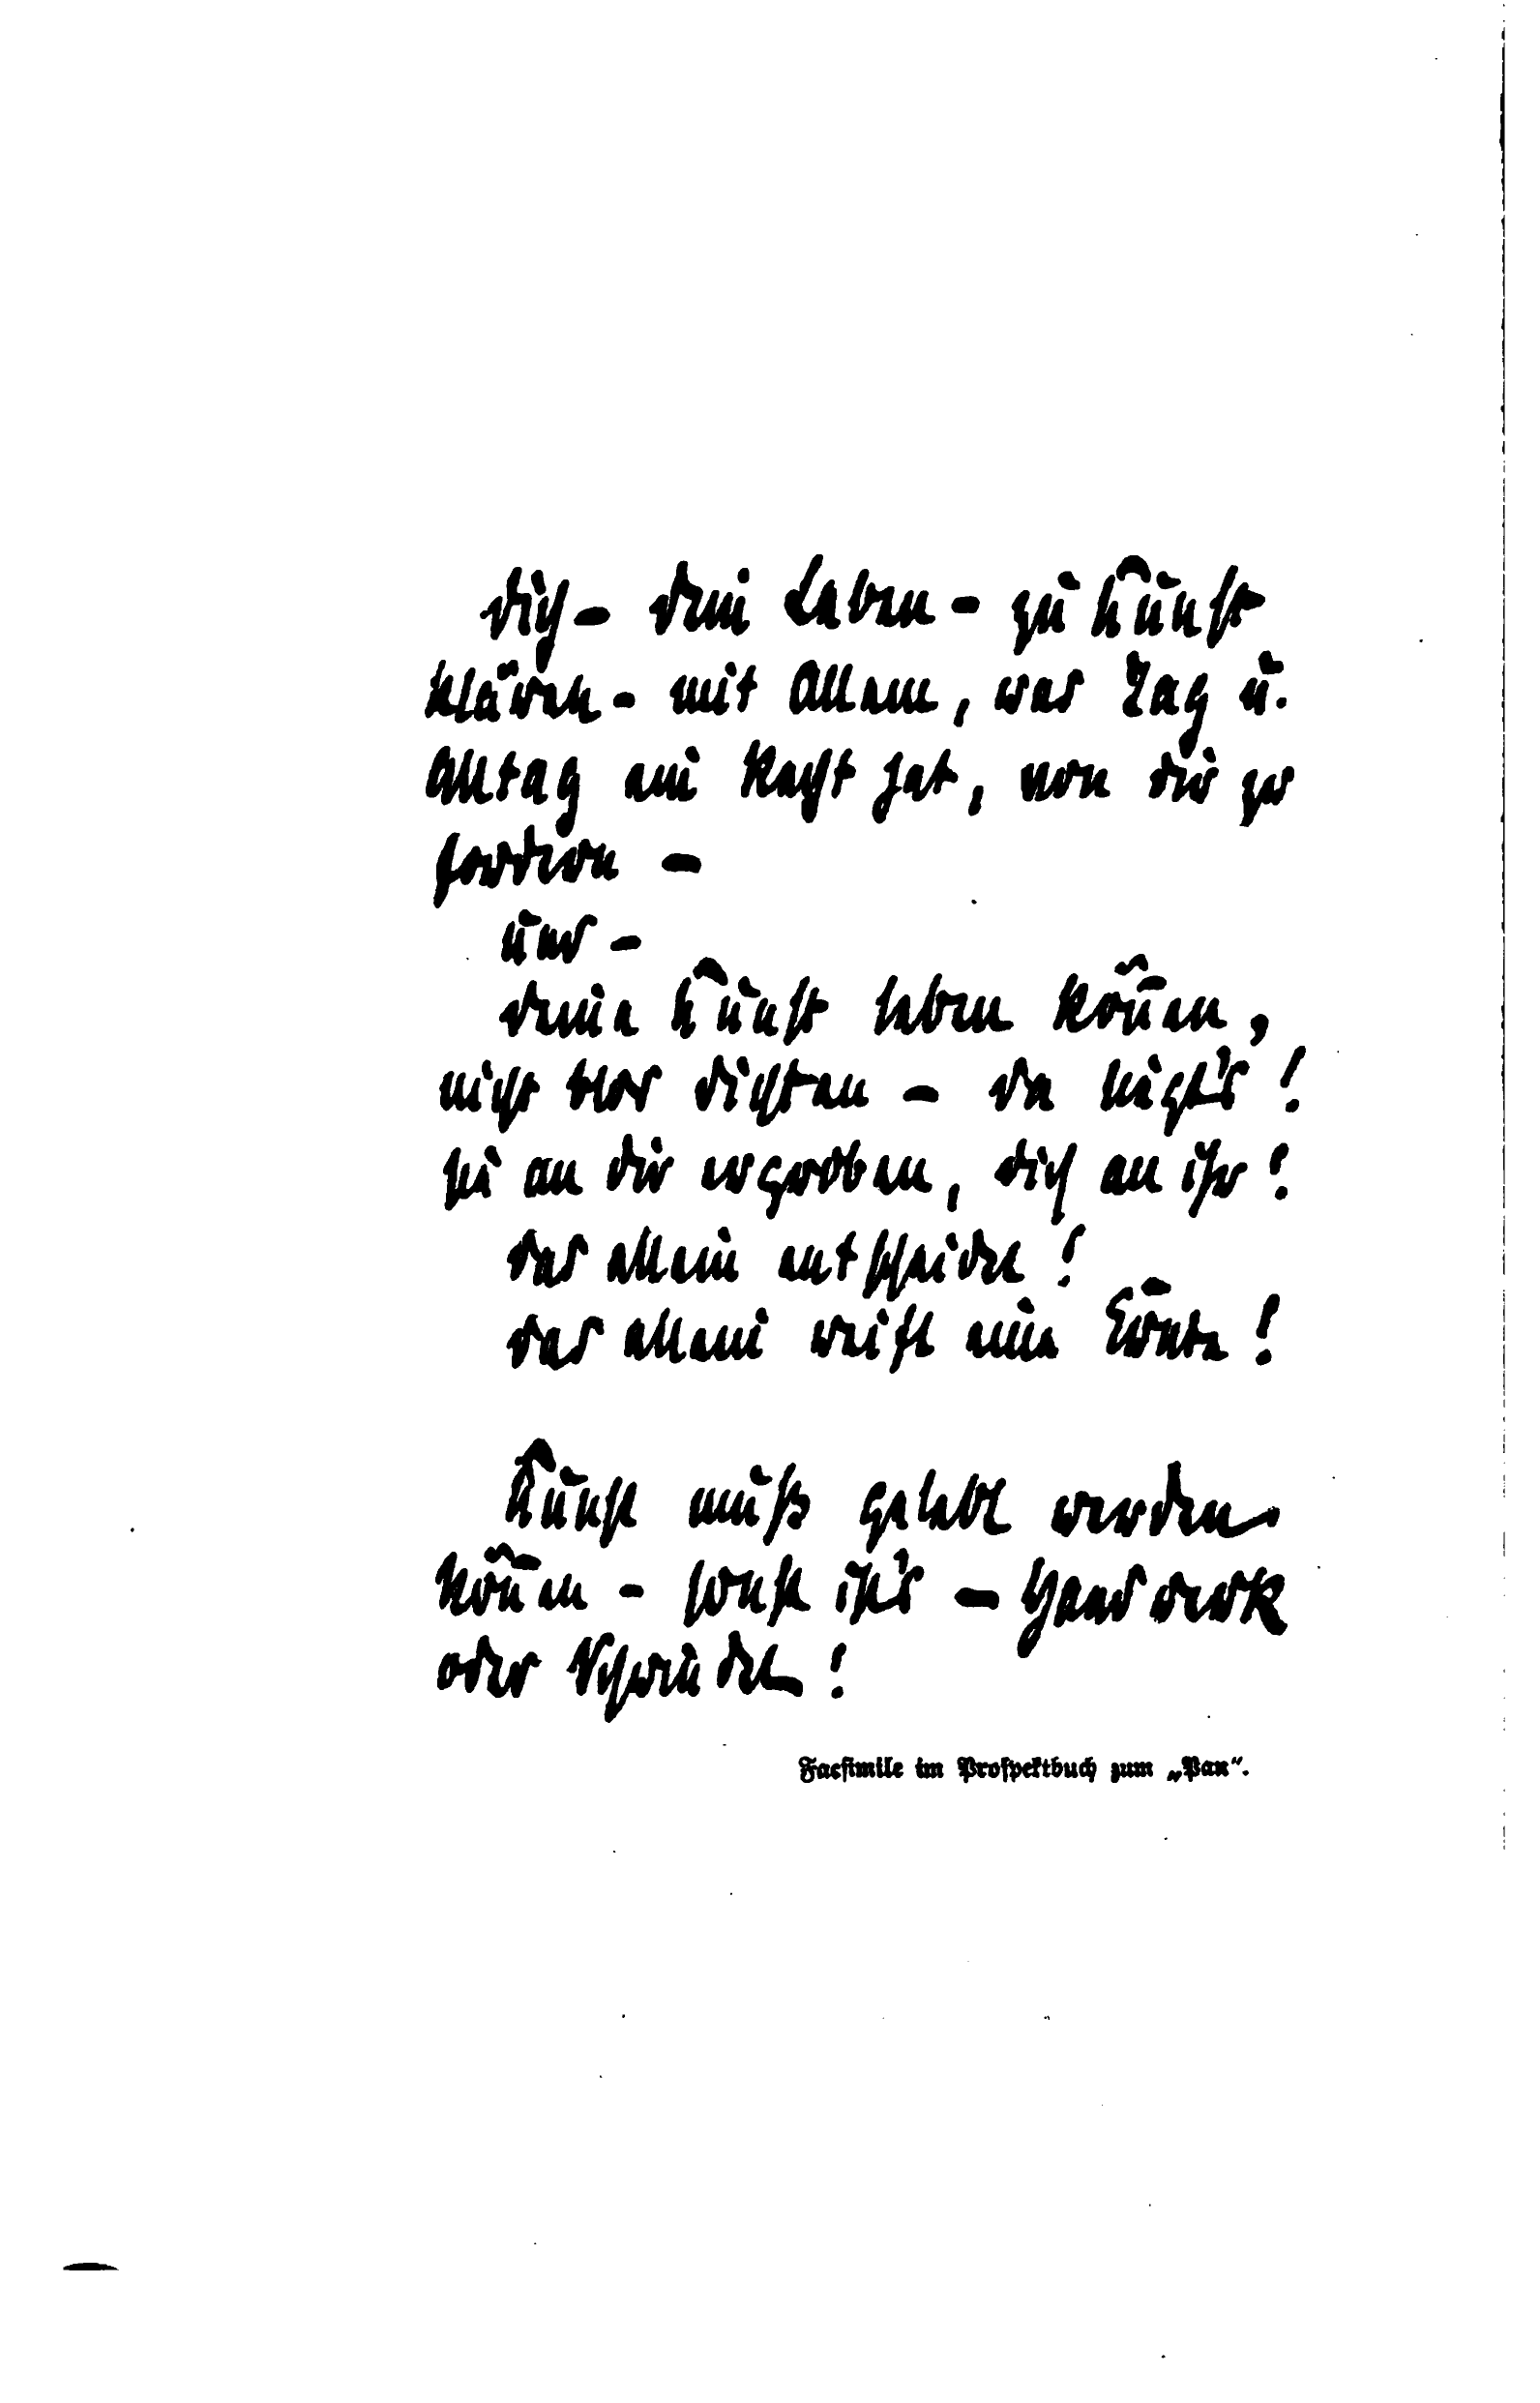 dich – dein Leben – zu Kunst
klären – mit Allem, was Tag u.
Alltag ein Recht hat, von dir zu
fordern –
und –
deine Kunst leben können,
nicht blos dichten – da liegt's!
sie an dir erproben, dich an ihr!
das allein entscheidet!
das allein weist eine Werte!
Kunst muß gelebt werden
können – sonst ist's – Handwerk
oder Schwindel!
Facsimile im Prospektbuch zum „Pan“.